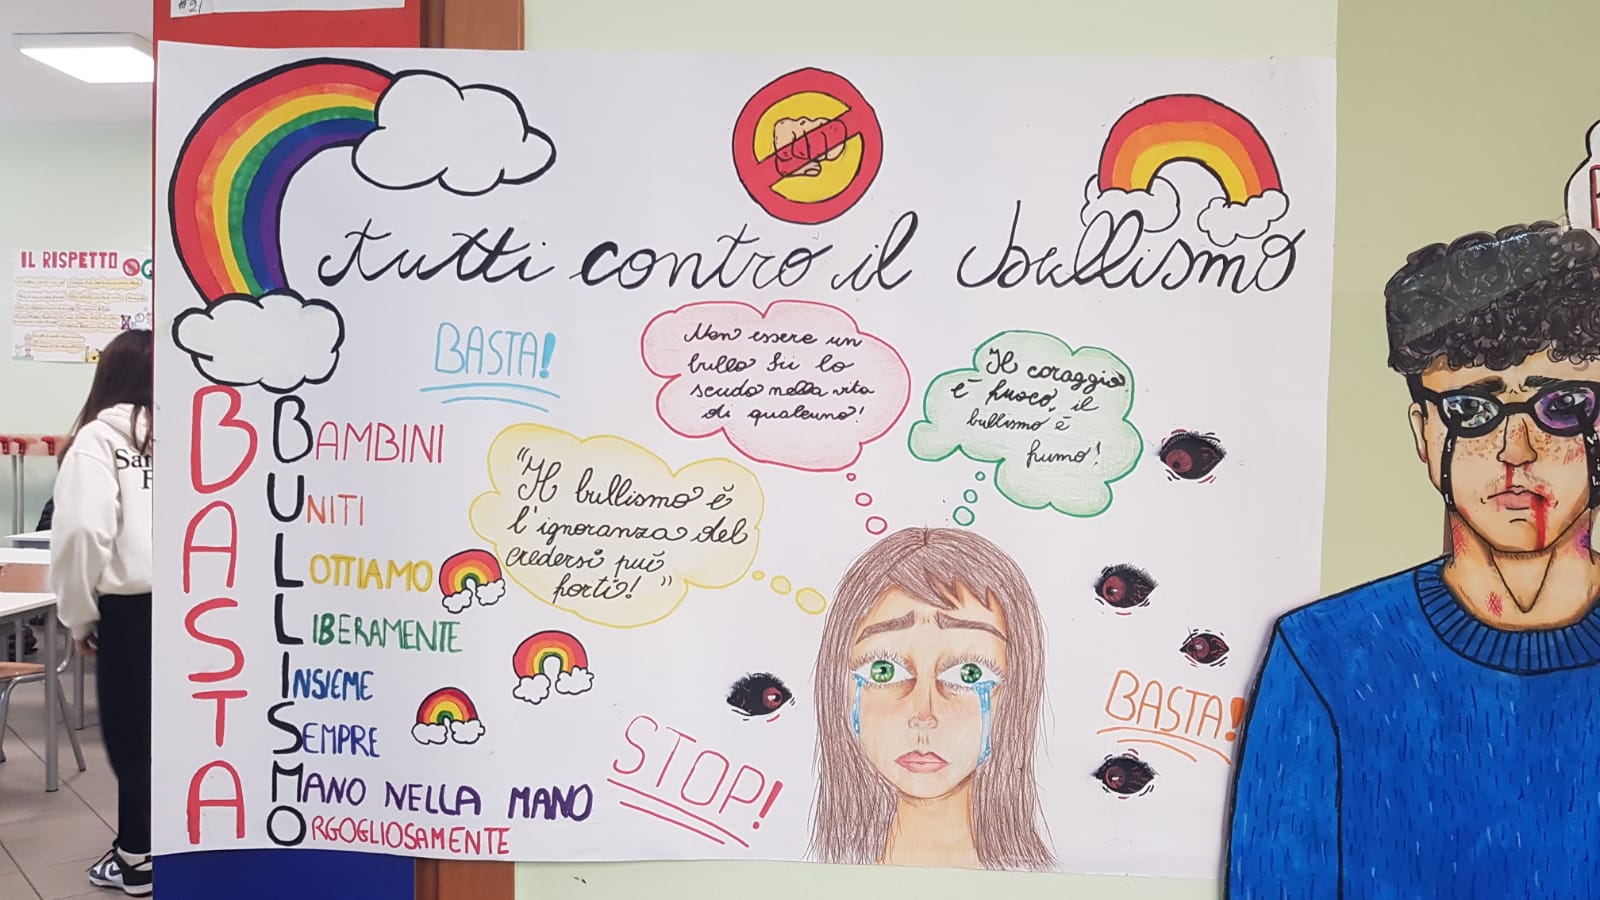 #21
IL RISPETTO
tutti contro il bullismo
BASTA!
Non essere un
bullo sii lo
scudo nella vita
di qualcuno!
Il coraggio
è fuoco, il
bullismo è
fumo!
"Il bullismo è
l'ignoranza del
credersi più
forti!"
BASTA
BAMBINI
UNITI
LOTTIAMO
LIBERAMENTE
INSIEME
SEMPRE
MANO NELLA MANO
ORGOGLIOSAMENTE
STOP!
BASTA!